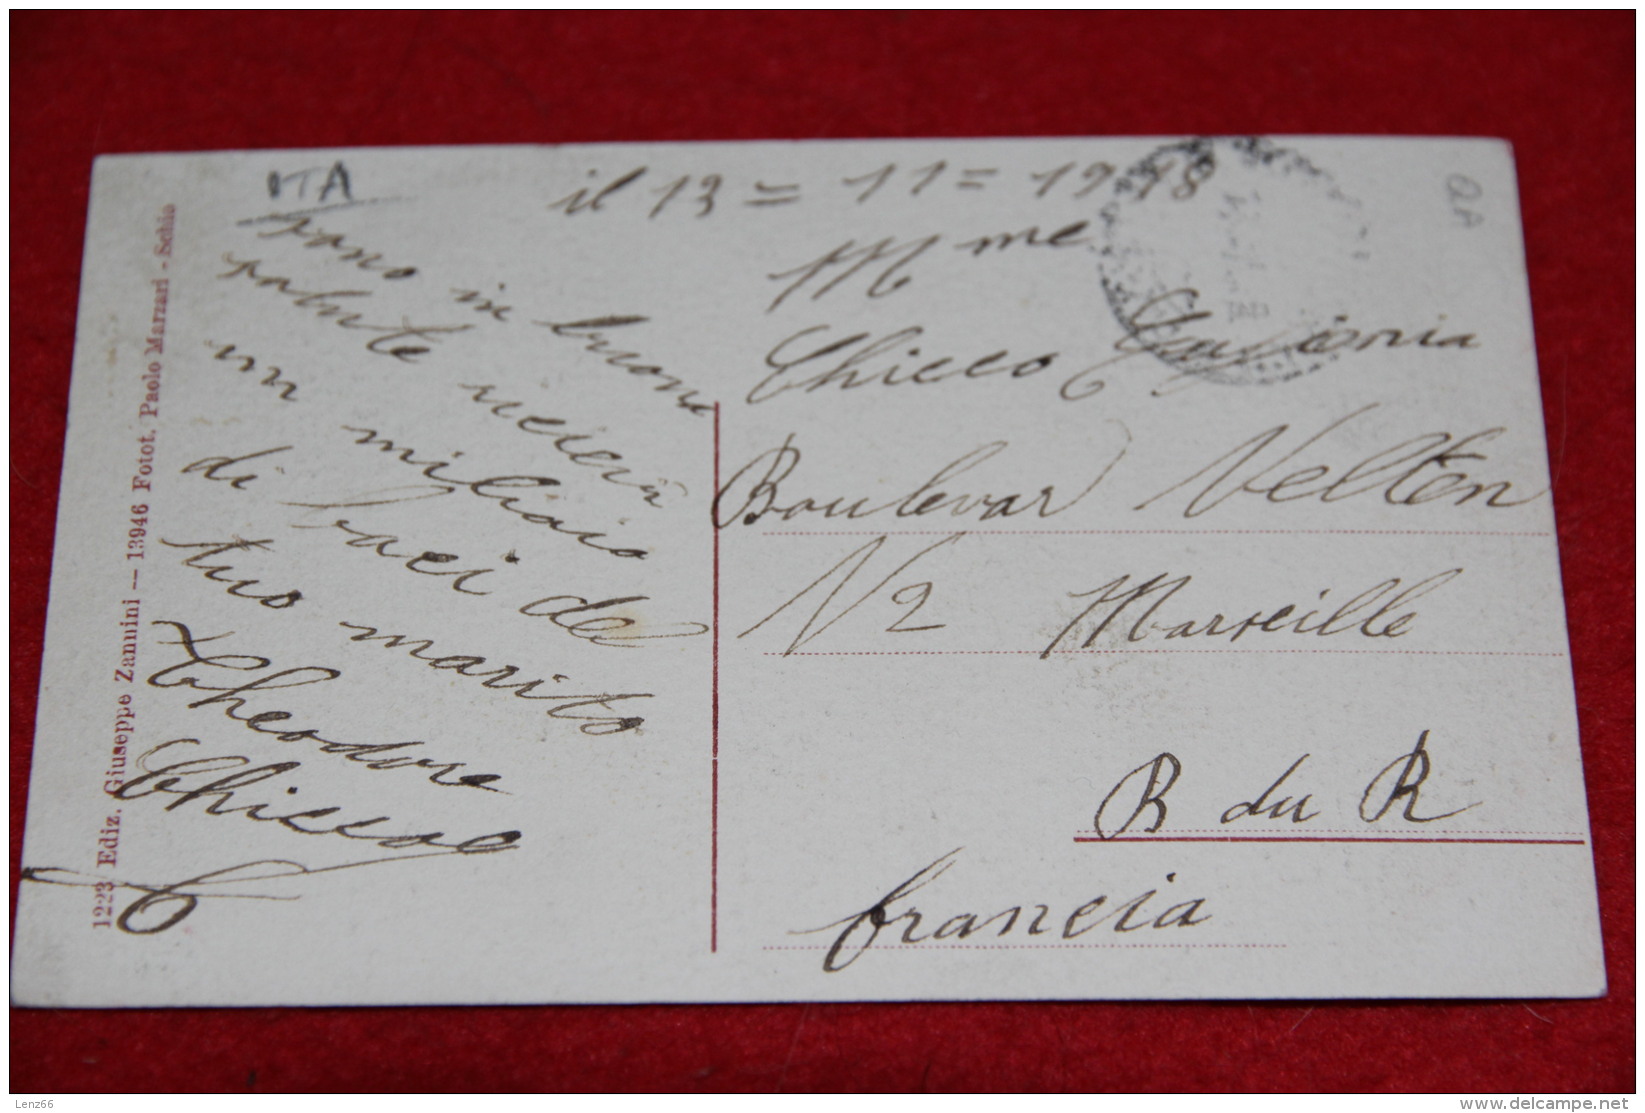 ITA
il 13 = 11 = 1918
QA
sono in buona
salute ricevi
un miliaio
di baci del
tuo marito
Theodore
Chicco
Mme
Chicco
Boulevar Velten
N 2 Marseille
B du R
francia
1223 Ediz. Giuseppe Zannini — 13946 Fotot. Paolo Marzari - Schio
Lenz66
www.delcampe.net